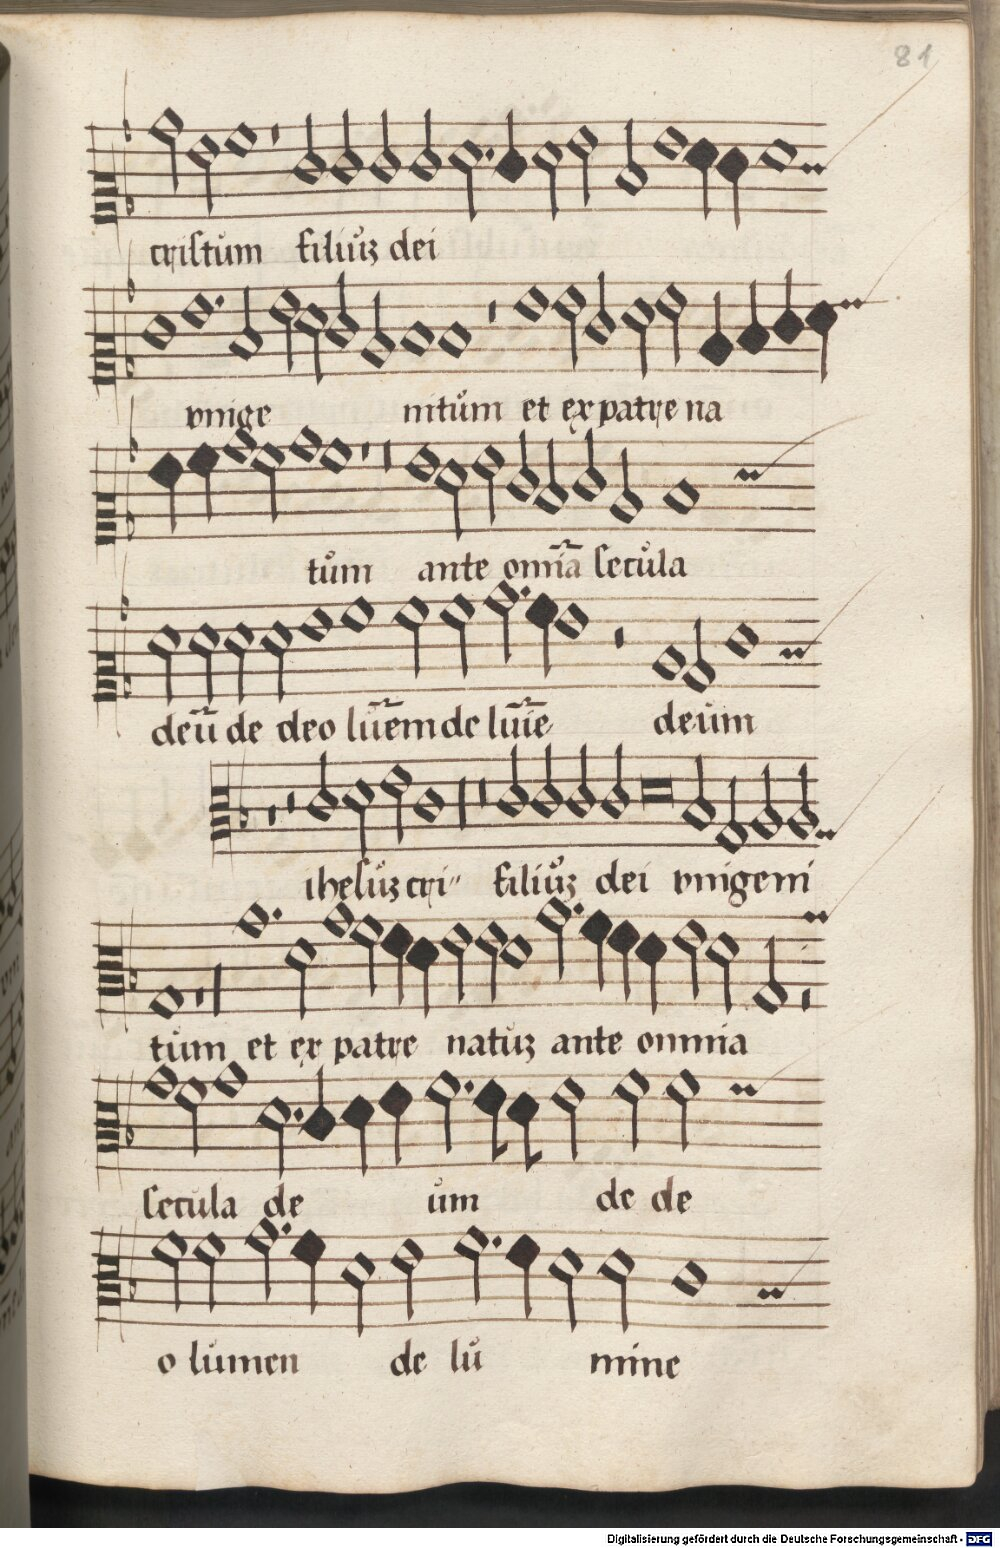 81
cristum filiuȝ dei
vnige nitum et ex patre na
tum ante om̃ia secula
deũ de deo lum̃em de lum̃ie deum
ihesuȝ cri〃 filiuȝ dei vnigeni
tum et ex patre natuȝ ante omnia
secula de um de de
o lumen de lu mine
Digitalisierung gefördert durch die Deutsche Forschungsgemeinschaft - DFG